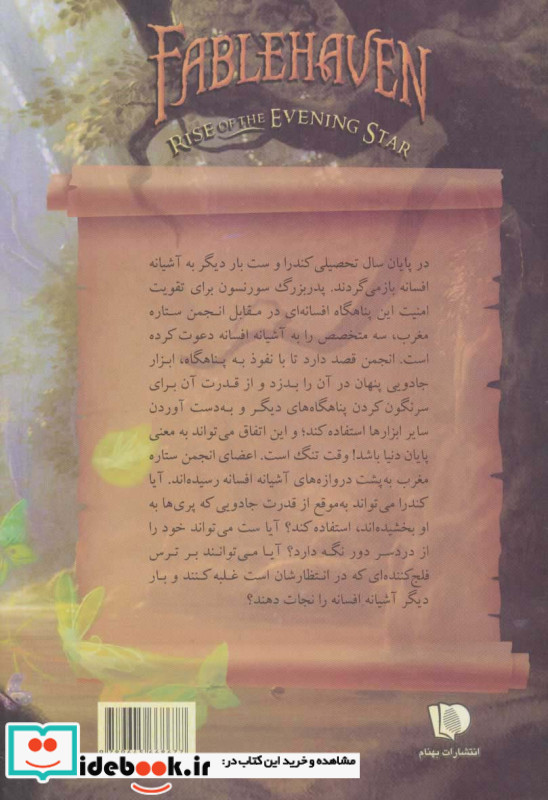 FABLEHAVEN
RISE OF THE EVENING STAR
در پایان سال تحصیلی کندرا و ست بار دیگر به آشیانه
افسانه بازمی‌گردند. پدربزرگ سورنسون برای تقویت
امنیت این پناهگاه افسانه‌ای در مقابل انجمن ستاره
مغرب، سه متخصص را به آشیانه افسانه دعوت کرده
است. انجمن قصد دارد تا با نفوذ به پناهگاه، ابزار
جادویی پنهان در آن را بدزد و از قدرت آن برای
سرنگون کردن پناهگاه‌های دیگر و به‌دست آوردن
سایر ابزارها استفاده کند؛ و این اتفاق می‌تواند به معنی
پایان دنیا باشد! وقت تنگ است. اعضای انجمن ستاره
مغرب به‌پشت دروازه‌های آشیانه افسانه رسیده‌اند. آیا
کندرا می‌تواند به‌موقع از قدرت جادویی که پری‌ها به
او بخشیده‌اند، استفاده کند؟ آیا ست می‌تواند خود را
از دردسر دور نگه دارد؟ آیا می‌توانند بر ترس
فلج‌کننده‌ای که در انتظارشان است غلبه کنند و بار
دیگر آشیانه افسانه را نجات دهند؟
انتشارات بهنام
مشاهده و خرید این کتاب در:
idebook.ir